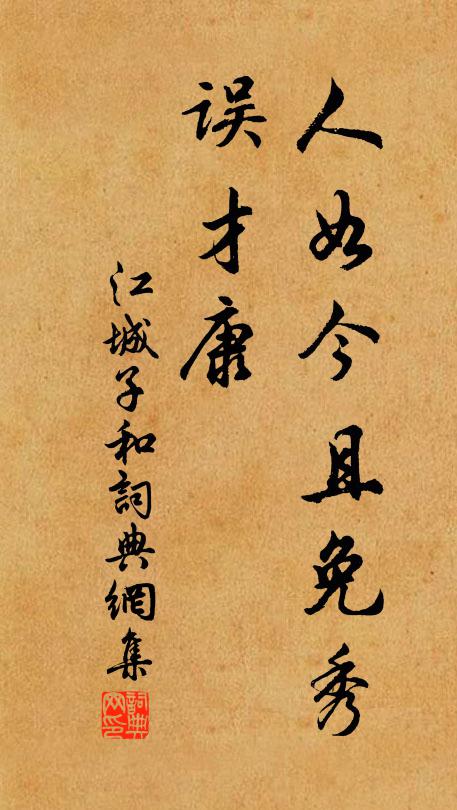 人如今且免秀
误才康
江城子和詞典網集
詞典網印